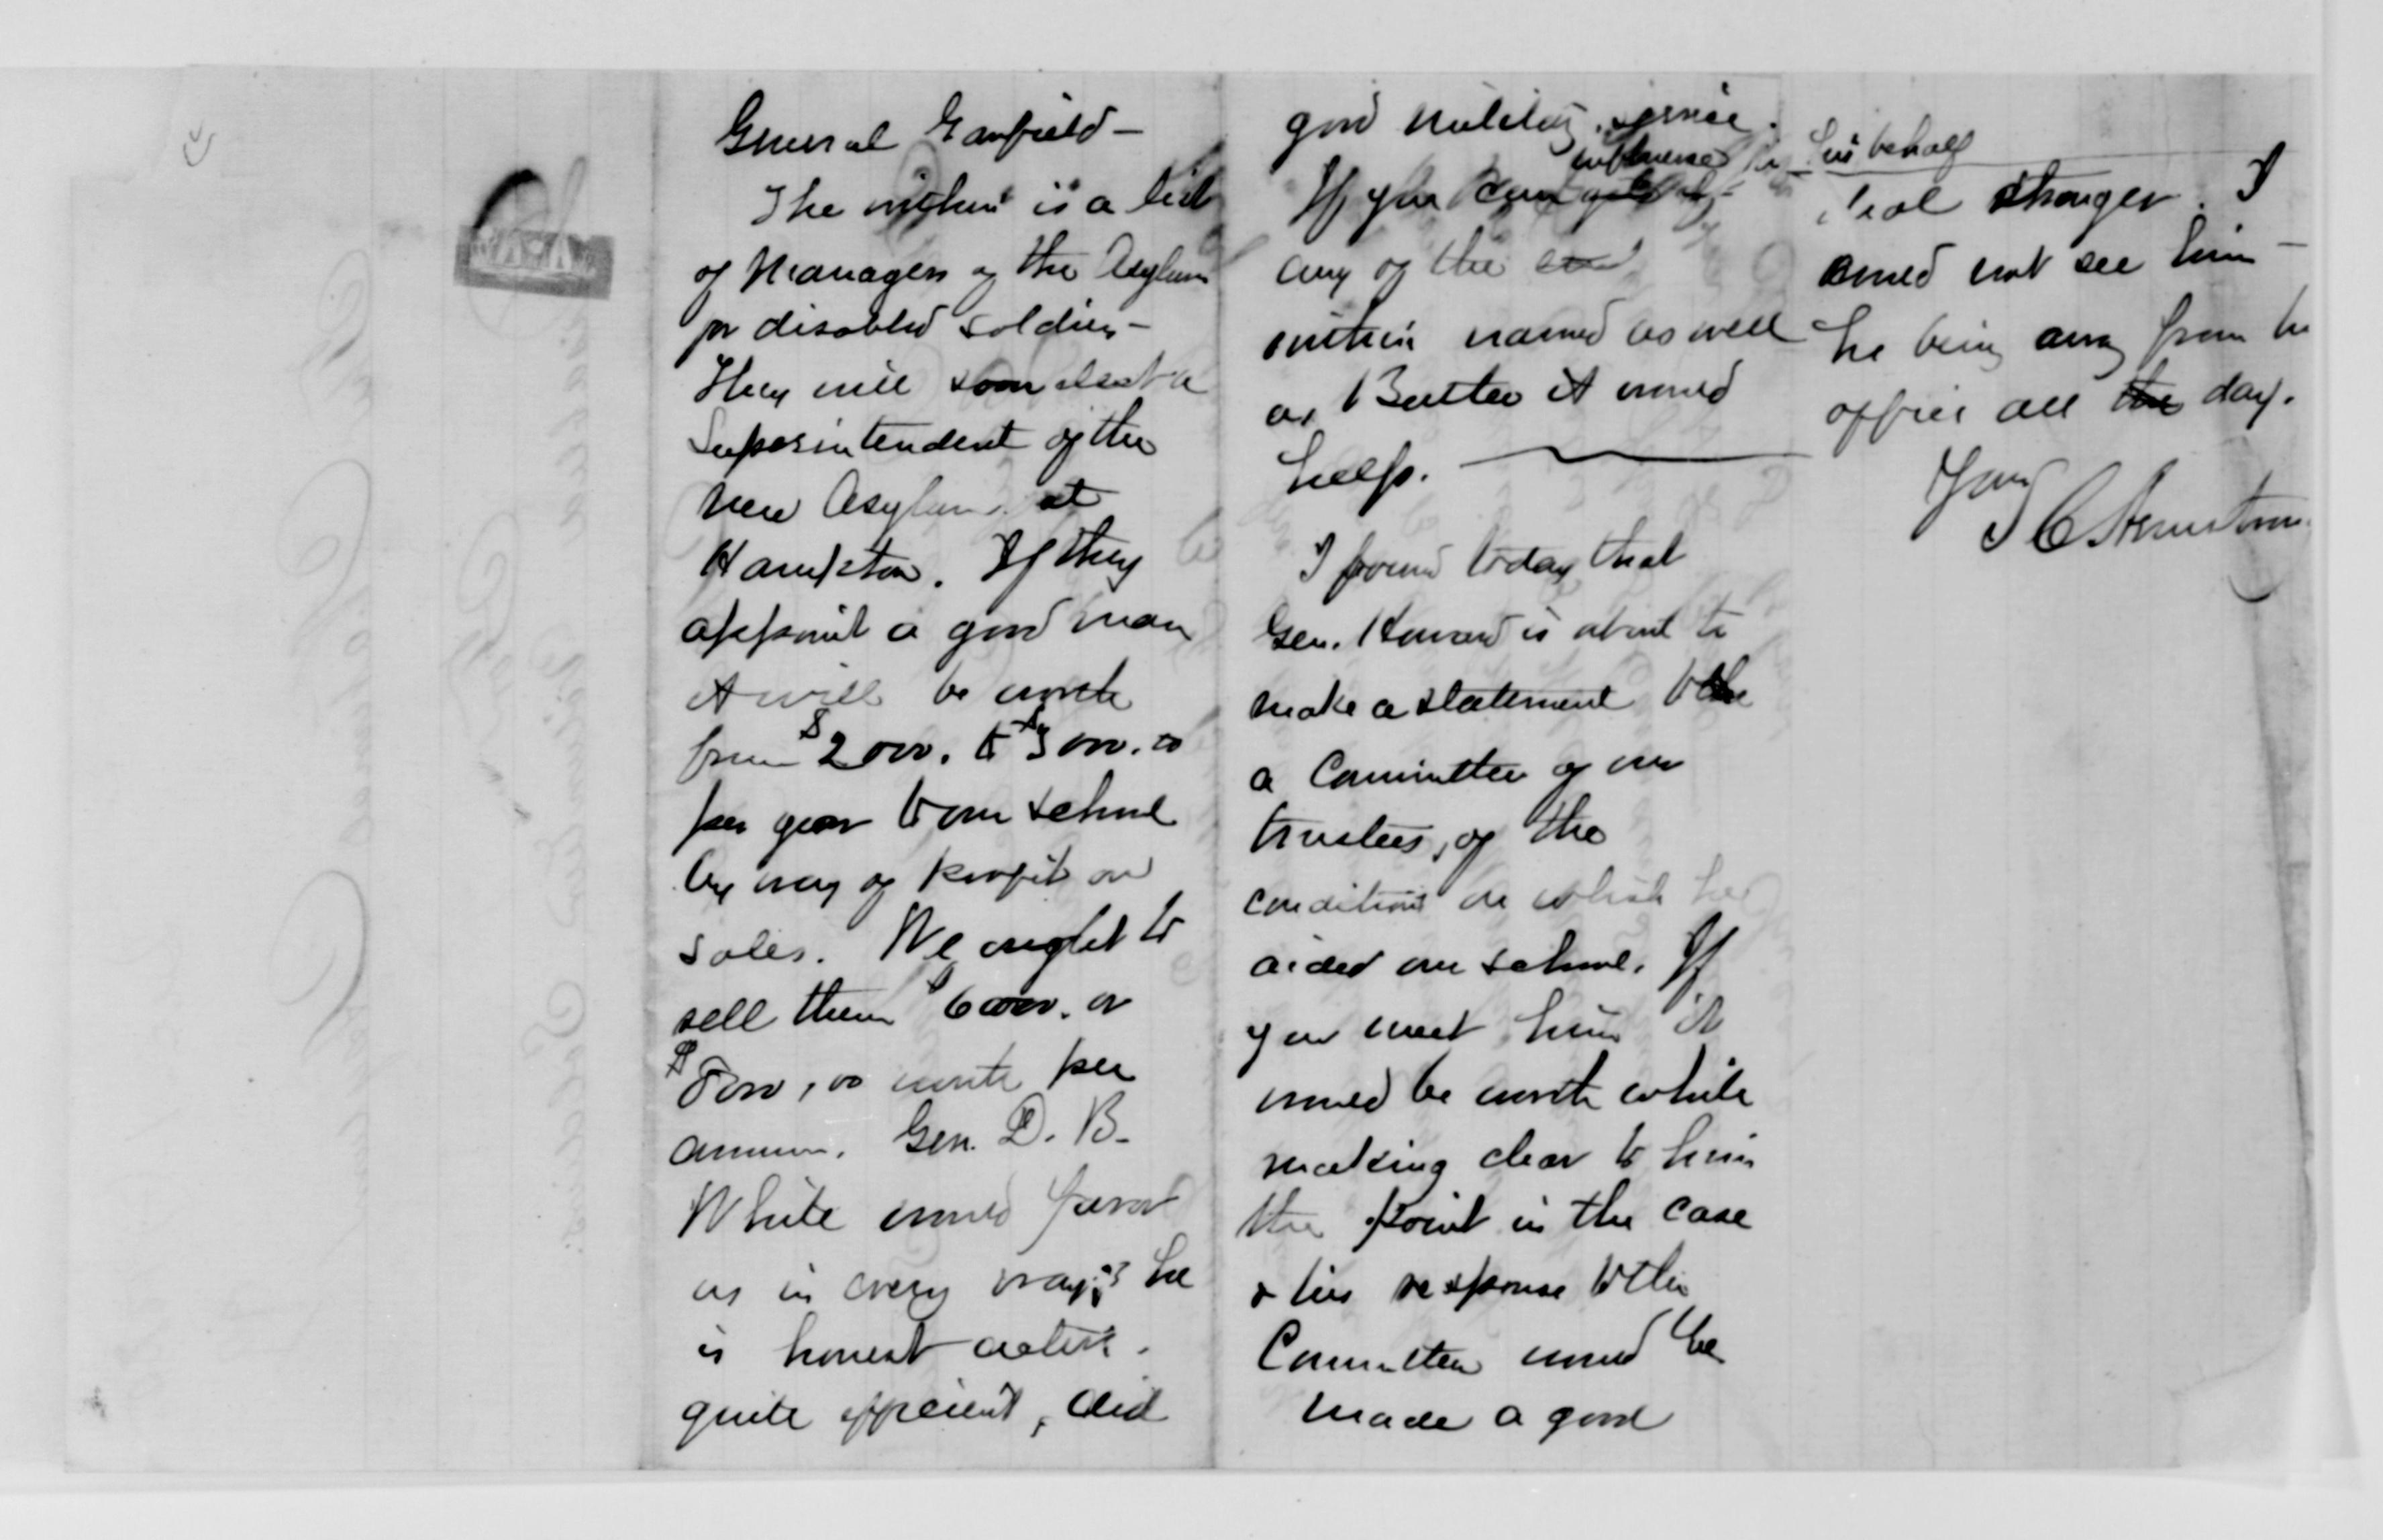 General Garfield -
The within is a list
of Managers of the Asylum
for disabled soldiers -
They will soon elect a
Superintendent of the
new Asylum at
Hampton. If they
appoint a good man
it will be worth
from $2000. to $3000.00
per year to our school
by way of profit on
sales. We ought to
sell them $6000. or
$8000,00 worth per
annum. Gen. D. B.
White would favor
us in every way; he
is honest active.
quite efficient, did
good military service.
influence in his behalf
If you can get
any of the
within named as well
as Butler it would
help.
I found today that
Gen. Howard is about to
make a statement to the
a Committee of our
trustees, of the
conditions on which he
aided our school. If
you meet him it
would be worth while
making clear to him
the point in the case
& his response to the
Committee would be
made a good
deal stronger. I
could not see him -
he being away from his
office all the day.
Yours
S C Armstrong